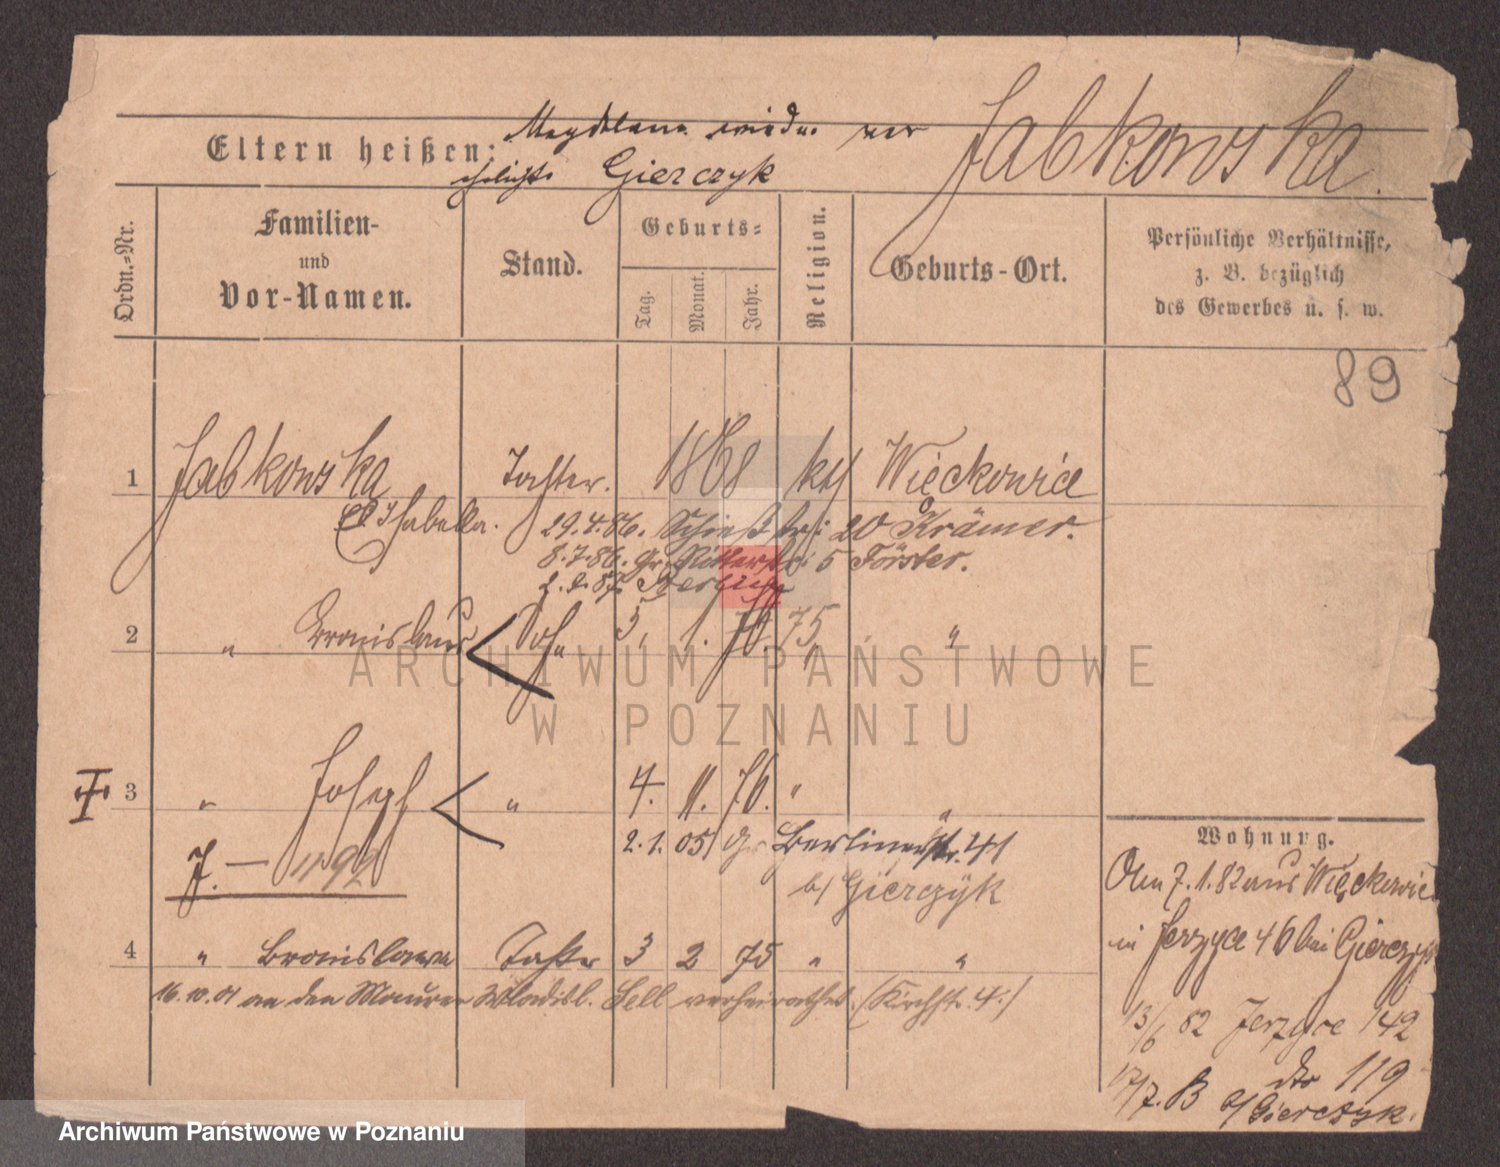 Magdalena wieder ver Jabkowska.
Eltern heißen:
ehelichte Gierczyk
Ordn.-Nr.
Familien-
und
Vor-Namen.
Stand.
Geburts-
Tag.
Monat.
Jahr.
Religion.
Geburts-Ort.
Persönliche Verhältnisse,
z. B. bezüglich
des Gewerbes u. s. w.
89
1 Jabkowska Tochter. 1868 kth Więckowice
Isabella. 29.4.86. Schießstr: 20 Krämer.
8.7.86. Gr. Ritterstr: 5 Förster.
87.
2 " Bronislaus Sohn 3. 1. 75 " "
3 " Joseph " 4. 11. 76. " "
2.1.05 Gr Berlinerstr. 41
b/ Gierczyk
J. — 1192
4 " Bronislawa Tochter 3 2 75 " "
16.10.01 an den Maurer Wladisl. Sell verheirathet. (Kirchstr. 4.)
Wohnung.
Am 7.1.82 aus Więckowice
in Jerzyce 46 bei Gierczyk
13/6 82 Jerzyce 142
17/7. 83 dto 119
b/ Gierczyk.
ARCHIWUM PAŃSTWOWE
W POZNANIU
Archiwum Państwowe w Poznaniu